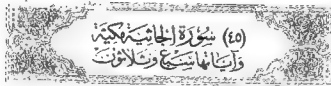 (٤٥) سُورَةِ الجَاثِيَةِ مَكِيَّة
وَآيَاتُهَا سَبْعٌ وَثَلَاثُونَ